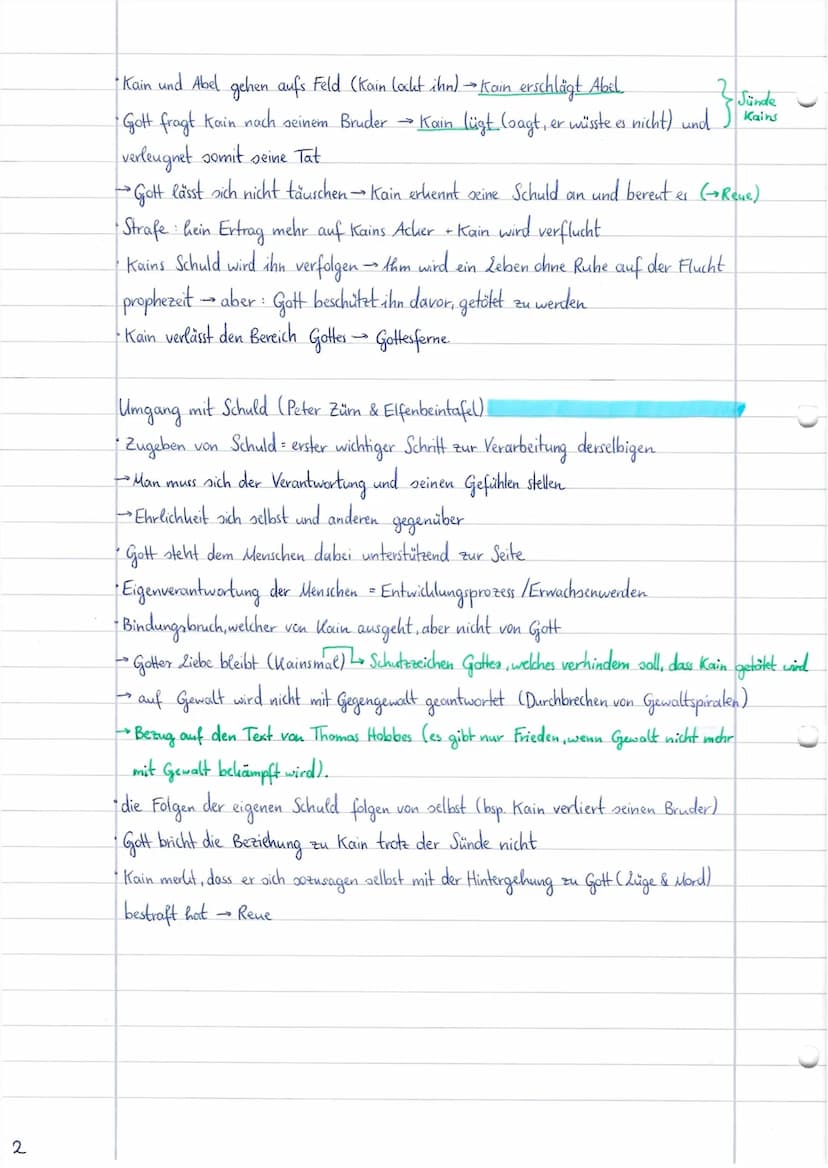 · Kain und Abel gehen aufs Feld (Kain lockt ihn) → Kain erschlägt Abel
· Gott fragt Kain nach seinem Bruder → Kain lügt (sagt, er wüsste es nicht) und
} Sünde
Kains
verleugnet somit seine Tat
→ Gott lässt sich nicht täuschen → Kain erkennt seine Schuld an und bereut es (→ Reue)
· Strafe: kein Ertrag mehr auf Kains Acker + Kain wird verflucht
· Kains Schuld wird ihn verfolgen → Ihm wird ein Leben ohne Ruhe auf der Flucht
prophezeit → aber: Gott beschützt ihn davor, getötet zu werden
· Kain verlässt den Bereich Gottes → Gottesferne
Umgang mit Schuld (Peter Zürn & Elfenbeintafel)
· Zugeben von Schuld = erster wichtiger Schritt zur Verarbeitung derselbigen
→ Man muss sich der Verantwortung und seinen Gefühlen stellen
→ Ehrlichkeit sich selbst und anderen gegenüber
· Gott steht dem Menschen dabei unterstützend zur Seite
· Eigenverantwortung der Menschen = Entwicklungsprozess / Erwachsenwerden
· Bindungsbruch, welcher von Kain ausgeht, aber nicht von Gott
→ Gottes Liebe bleibt (Kainsmal) ↳ Schutzzeichen Gottes, welches verhindern soll, dass Kain getötet wird
→ auf Gewalt wird nicht mit Gegengewalt geantwortet (Durchbrechen von Gewaltspiralen)
→ Bezug auf den Text von Thomas Hobbes (es gibt nur Frieden, wenn Gewalt nicht mehr
mit Gewalt bekämpft wird).
· die Folgen der eigenen Schuld folgen von selbst (bsp. Kain verliert seinen Bruder)
· Gott bricht die Beziehung zu Kain trotz der Sünde nicht
· Kain merkt, dass er sich sozusagen selbst mit der Hintergehung zu Gott (Lüge & Mord)
bestraft hat → Reue
2